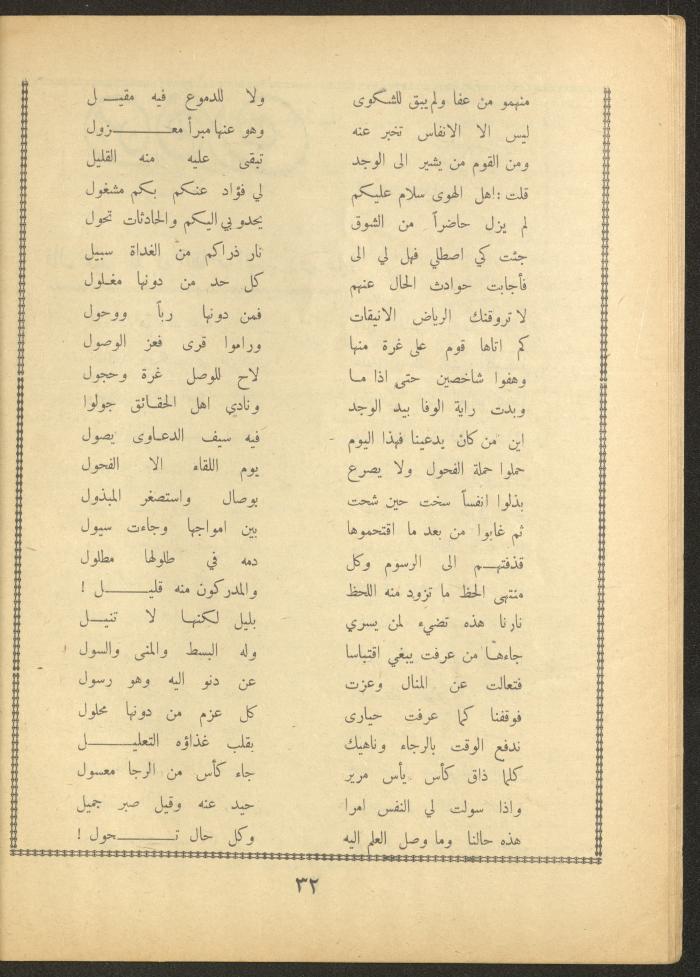 منهمو من عفا ولم يبق للشكوى ولا للدموع فيه مقيـــل
ليس الا الانفاس تخبر عنه وهو عنها مبرأ معـــــــزول
ومن القوم من يشير الى الوجد تبقى عليه منه القليل
قلت : اهل الهوى سلام عليكم لي فؤاد عنكم بكم مشغول
لم يزل حاضراً من الشوق يحدو بي اليكم والحادثات تحول
جئت كي اصطلي فهل لي الى نار ذراكم من الغداة سبيل
فأجابت حوادث الحال عنهم كل حد من دونها مغلول
لا تروقنك الرياض الانيقات فمن دونها رباً ووحول
كم اتاها قوم على غرة منها وراموا قرى فعز الوصول
وهفوا شاخصين حتى اذا مـا لاح للوصل غرة وحجول
وبدت راية الوفا بيد الوجد ونادي اهل الحقـائق جولوا
اين من كان يدعينا فهذا اليوم فيه سيف الدعـاوى يصول
حملوا حملة الفحول ولا يصرع يوم اللقاء الا الفحول
بذلوا انفساً سخت حين شحت بوصال واستصغر المبذول
ثم غابوا من بعد ما اقتحموها بين امواجها وجاءت سيول
قذفتهـم الى الرسوم وكل دمه في طلولها مطلول
منتهى الحظ ما تزود منه اللحظ والمدركون منه قليـــــل !
نارنا هذه تضيء لمن يسري بليل لكنهـا لا تنيـــل
جاءهـا من عرفت يبغي اقتباسا وله البسط والمنى والسول
فتعالت عن المنال وعزت عن دنو اليه وهو رسول
فوقفنا كما عرفت حيارى كل عزم من دونها محلول
ندفع الوقت بالرجاء وناهيك بقلب غذاؤه التعليـــــل
كلما ذاق كأس يأس مرير جاء كأس من الرجا معسول
واذا سولت لي النفس امرا حيد عنه وقيل صبر جميل
هذه حالنا وما وصل العلم اليه وكل حال تـــــــحول !
٣٢